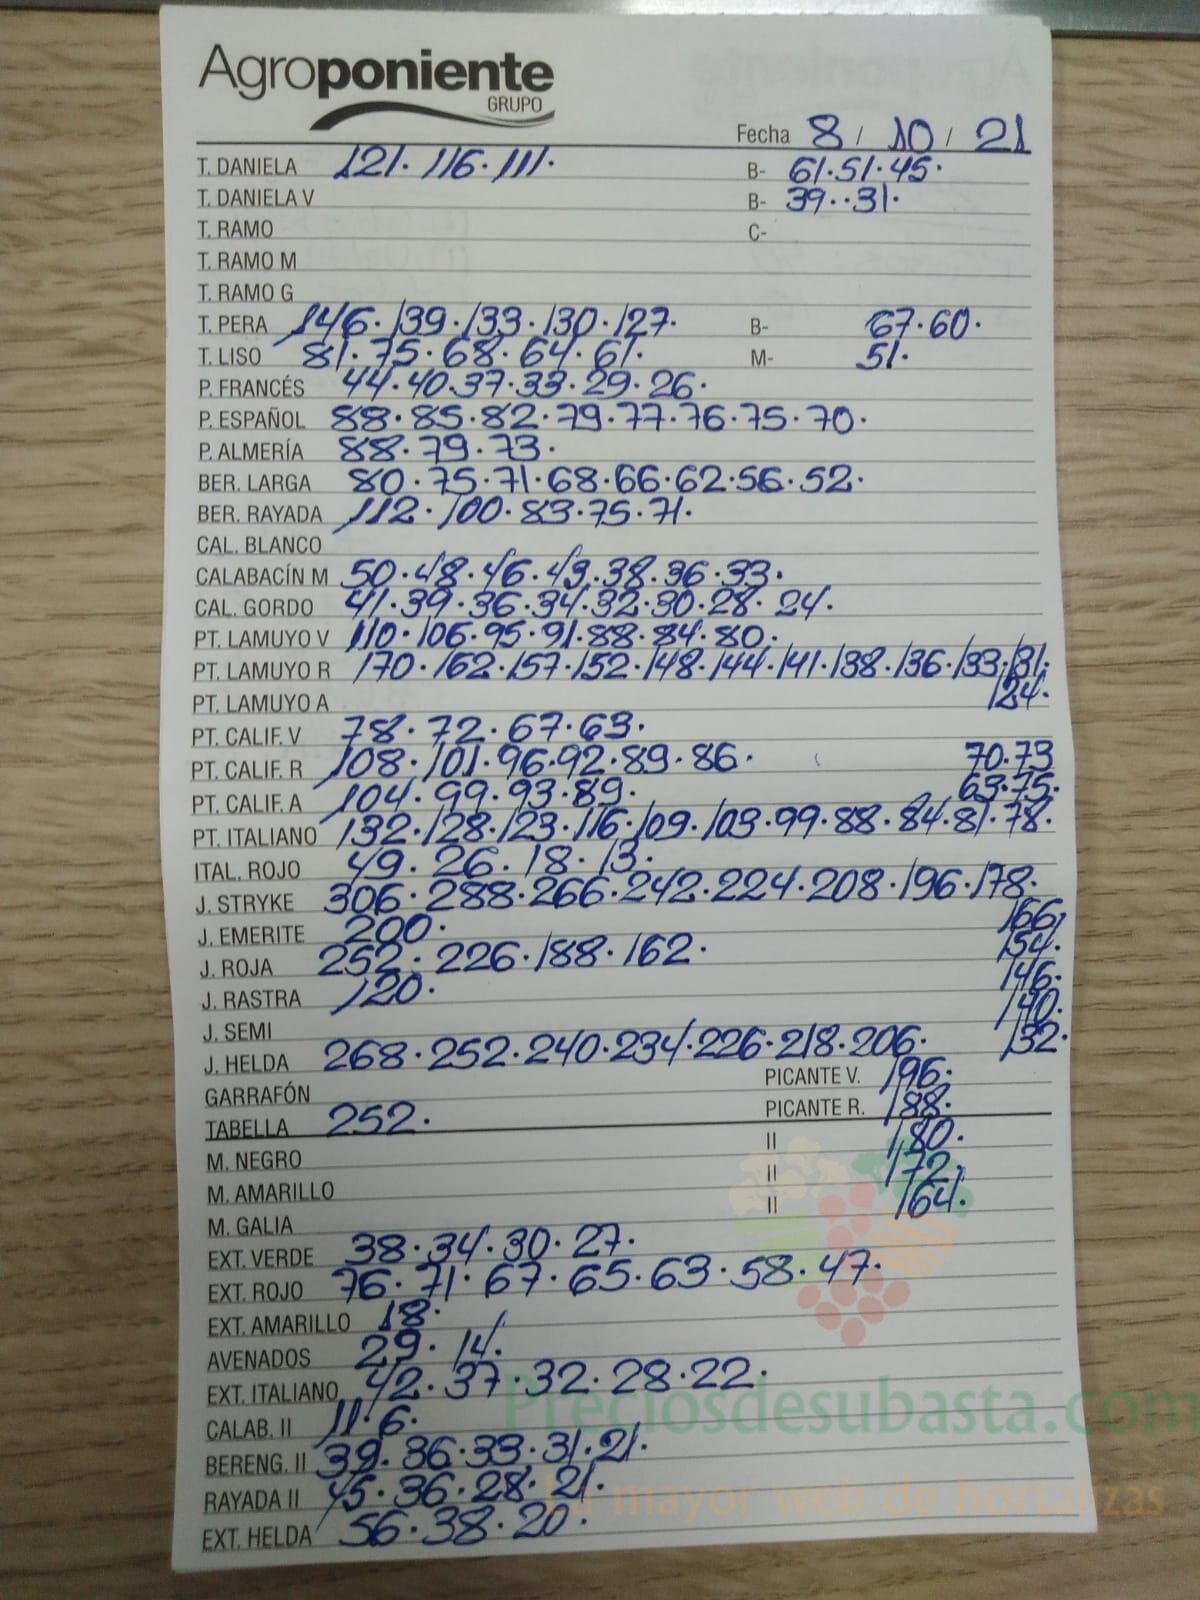 Agroponiente
GRUPO
Fecha 8 / 10 / 21
T. DANIELA 121. 116. 111. B- 61.51.45.
T. DANIELA V B- 39..31.
T. RAMO C-
T. RAMO M
T. RAMO G
T. PERA 146. 139. 133. 130. 127. B- 67.60.
T. LISO 81. 75. 68. 64. 61. M- 51.
P. FRANCÉS 44.40.37.33.29.26.
P. ESPAÑOL 88.85.82.79.77.76.75.70.
P. ALMERÍA 88.79.73.
BER. LARGA 80.75.71.68.66.62.56.52.
BER. RAYADA 112.100.83.75.71.
CAL. BLANCO
CALABACÍN M 50.48.46.43.38.36.33.
CAL. GORDO 41.39.36.34.32.30.28.24.
PT. LAMUYO V 110.106.95.91.88.84.80.
PT. LAMUYO R 170.162.157.152.148.144.141.138.136.133.131.
PT. LAMUYO A 124.
PT. CALIF. V 78.72.67.63.
PT. CALIF. R 108.101.96.92.89.86. 70.73
PT. CALIF. A 104.99.93.89. 63.75.
PT. ITALIANO 132.128.123.116.109.103.99.88.84.81.78.
ITAL. ROJO 49.26.18.13.
J. STRYKE 306.288.266.242.224.208.196.178.
J. EMERITE 200. 166.
J. ROJA 252.226.188.162. 154.
J. RASTRA 120. 146.
J. SEMI 140.
J. HELDA 268.252.240.234.226.218.206. 132.
GARRAFÓN PICANTE V. 196.
TABELLA 252. PICANTE R. 188.
M. NEGRO II 180.
M. AMARILLO II 172.
M. GALIA II 164.
EXT. VERDE 38.34.30.27.
EXT. ROJO 76.71.67.65.63.58.47.
EXT. AMARILLO 18.
AVENADOS 29.14.
EXT. ITALIANO 42.37.32.28.22.
Preciosdesubasta.com
CALAB. II 11.6.
BERENG. II 39.36.33.31.21.
RAYADA II 45.36.28.21.
La mayor web de hortalizas
EXT. HELDA 56.38.20.